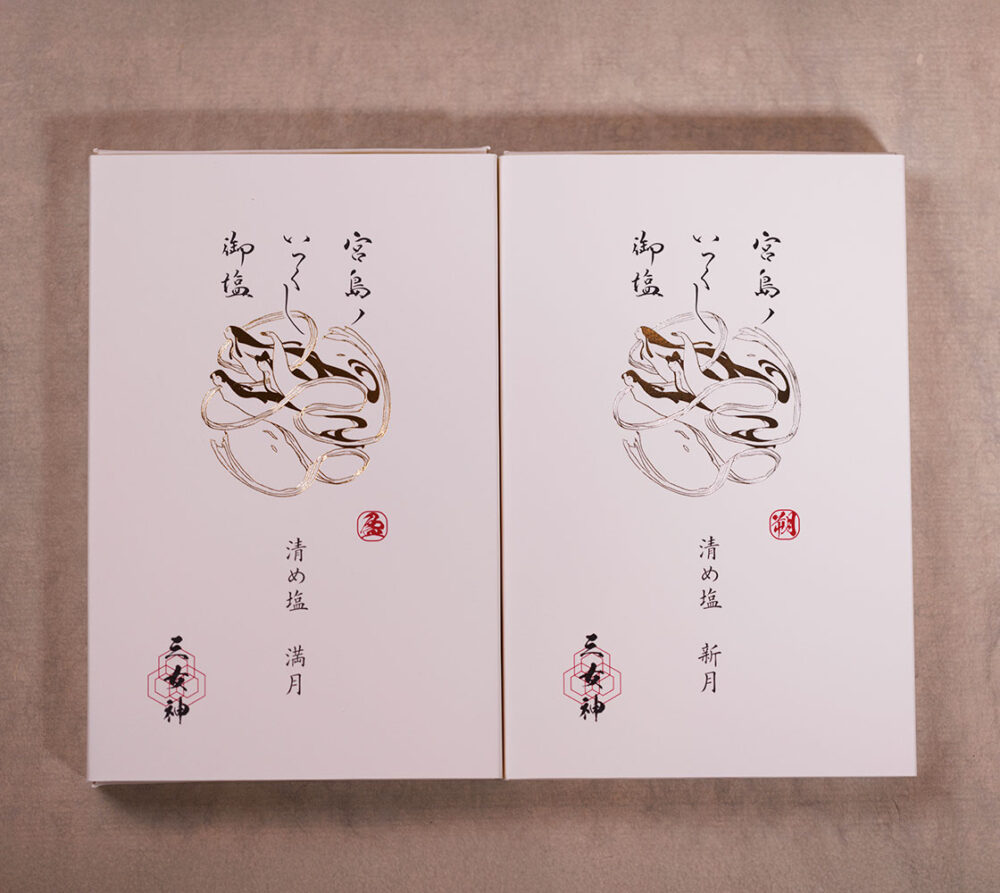 宮島ノ
いつくし
御塩
盈
清め塩 満月
三女神
宮島ノ
いつくし
御塩
朔
清め塩 新月
三女神